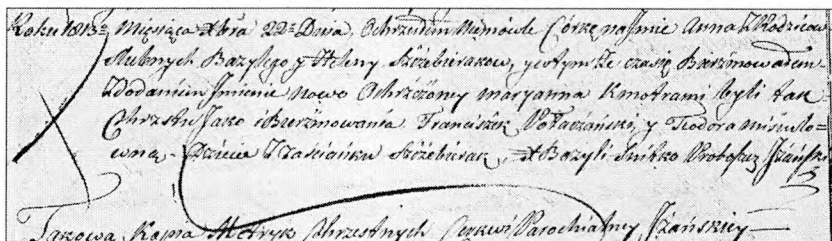 Roku 1813º Miesiąca Xbra 22º Dnia. Ochrzciłem Niemowle Córkę na Jmie Anna Z Rodzicow
Slubnych Bazylego y Heleny Szczebiurakow, y w tym Że czasie Bierzmowałem
Z dodaniem Jmienia nowo Ochrzczoney Maryanna Kmotrami byli tak
Chrztu Jako i Bierzmowania Franciszek y Teodora
Dziecie Z Zaścianku Szczebiurak, X Bazyli Proboszcz
Takowa Kopia Metryk Chrzestnych Cerkwi Parochialney